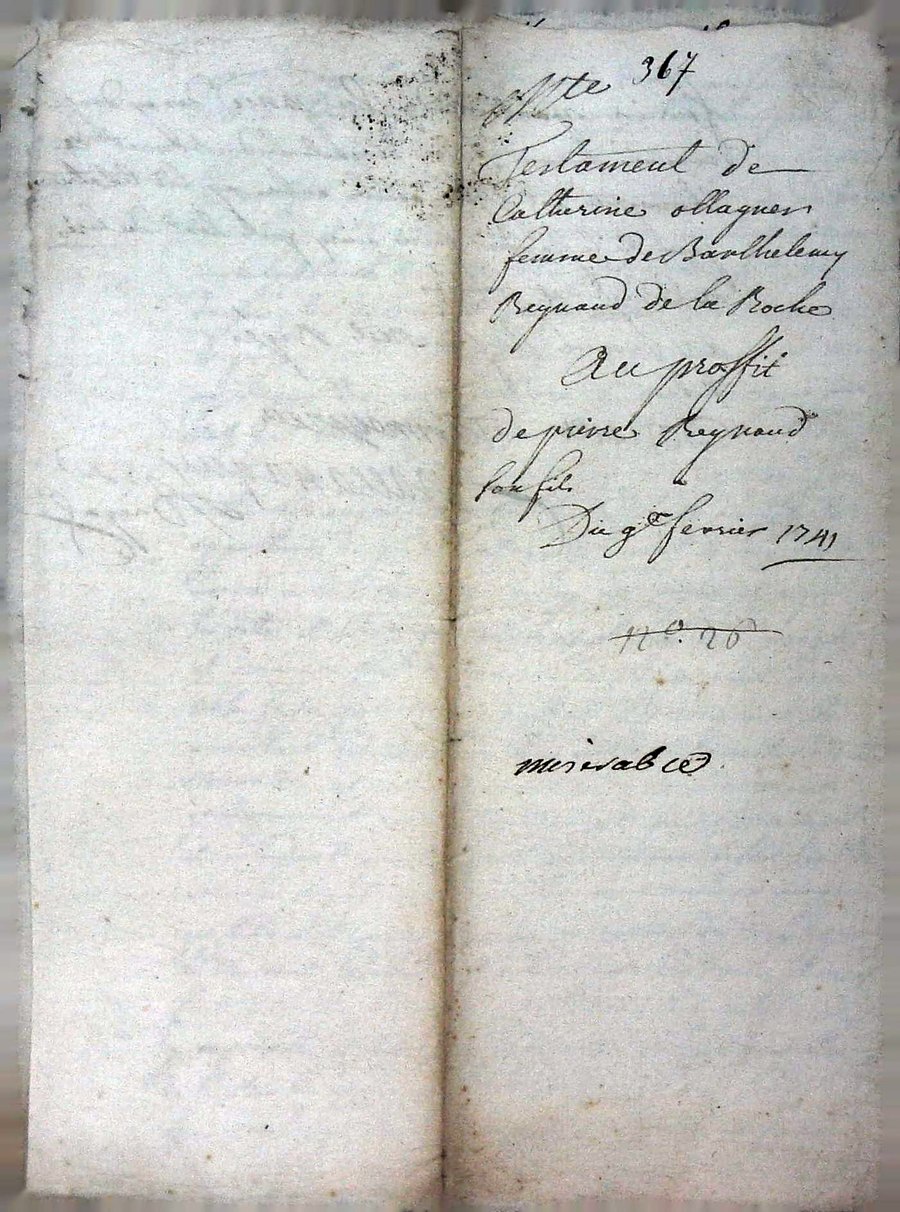 367
Testament de
Catherine ollagner
femme de Barthelemy
Reynaud de la Roche
Au proffit
de pierre Reynaud
son fils
Du 9e fevrier 1741
n°. 26
miserable